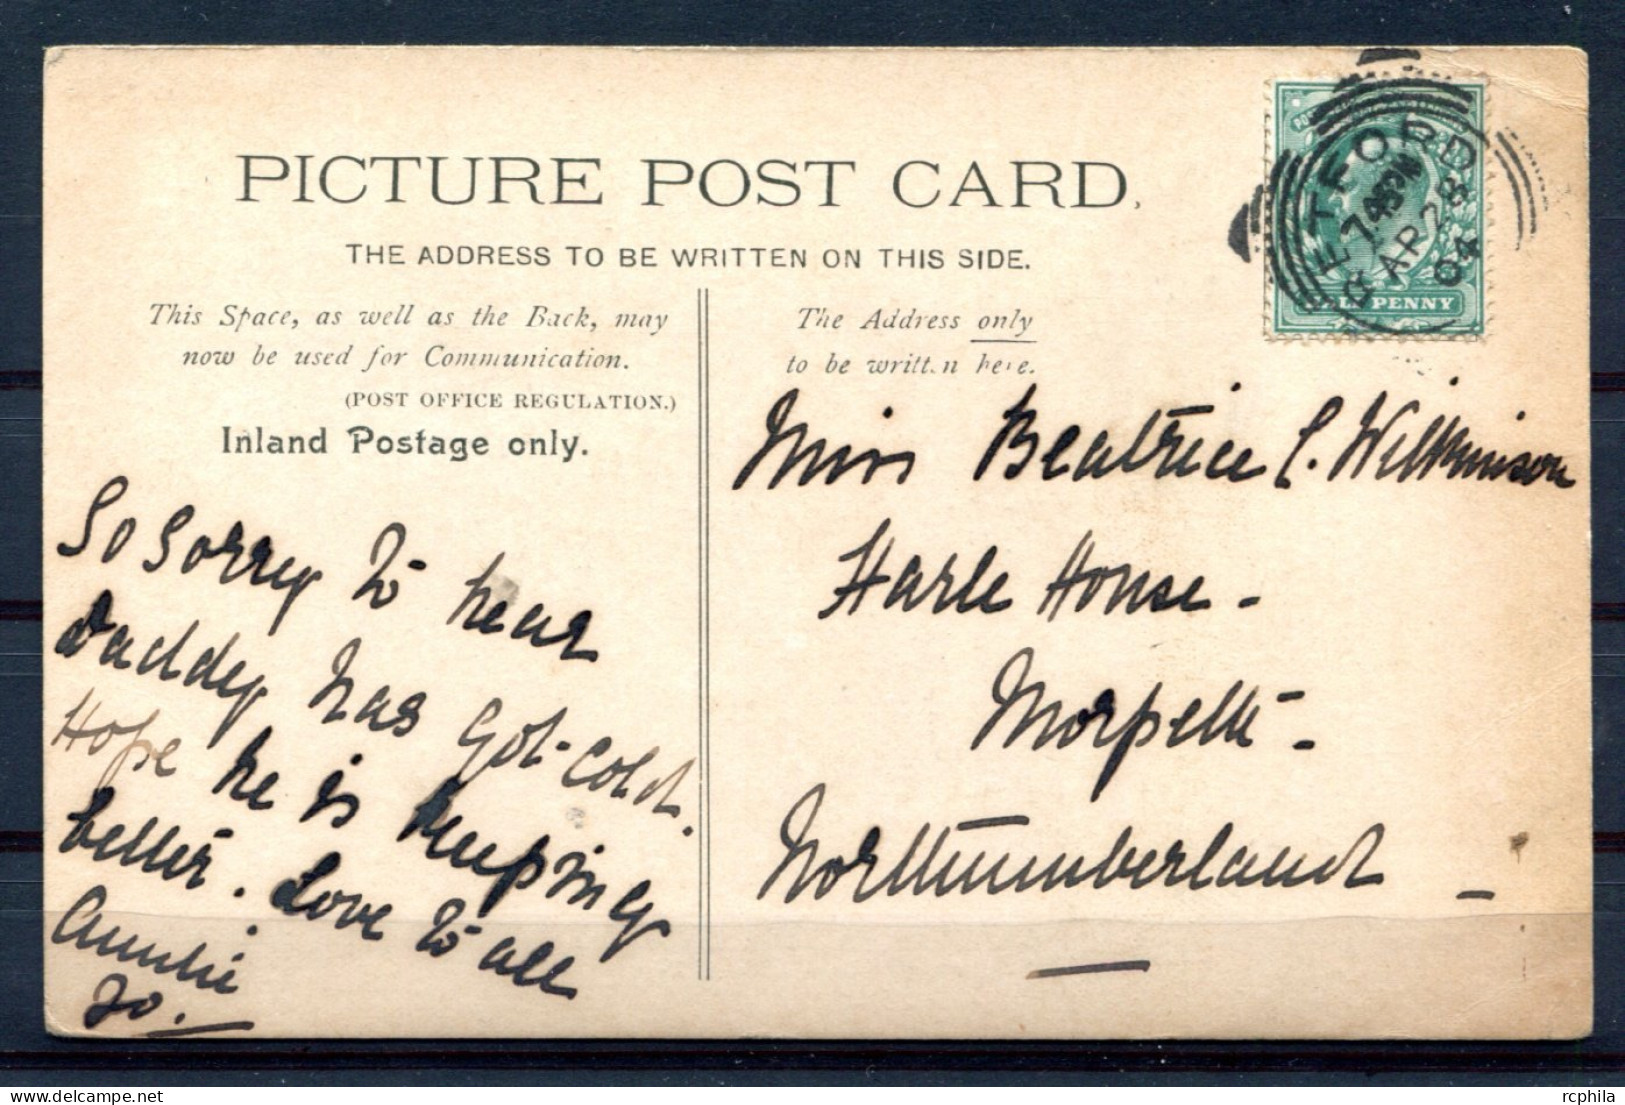 PICTURE POST CARD.
THE ADDRESS TO BE WRITTEN ON THIS SIDE.
This Space, as well as the Back, may
now be used for Communication.
(POST OFFICE REGULATION.)
Inland Postage only.
So sorry to hear
Daddy has got cold.
Hope he is keeping
better. Love to all
Auntie
Jo.
The Address only
to be written here.
Miss Beatrice C. Wilkinson
Harle House -
Morpeth -
Northumberland -
RETFORD
7 45 PM
AP 28
04
PENNY
delcampe.net
rcphila